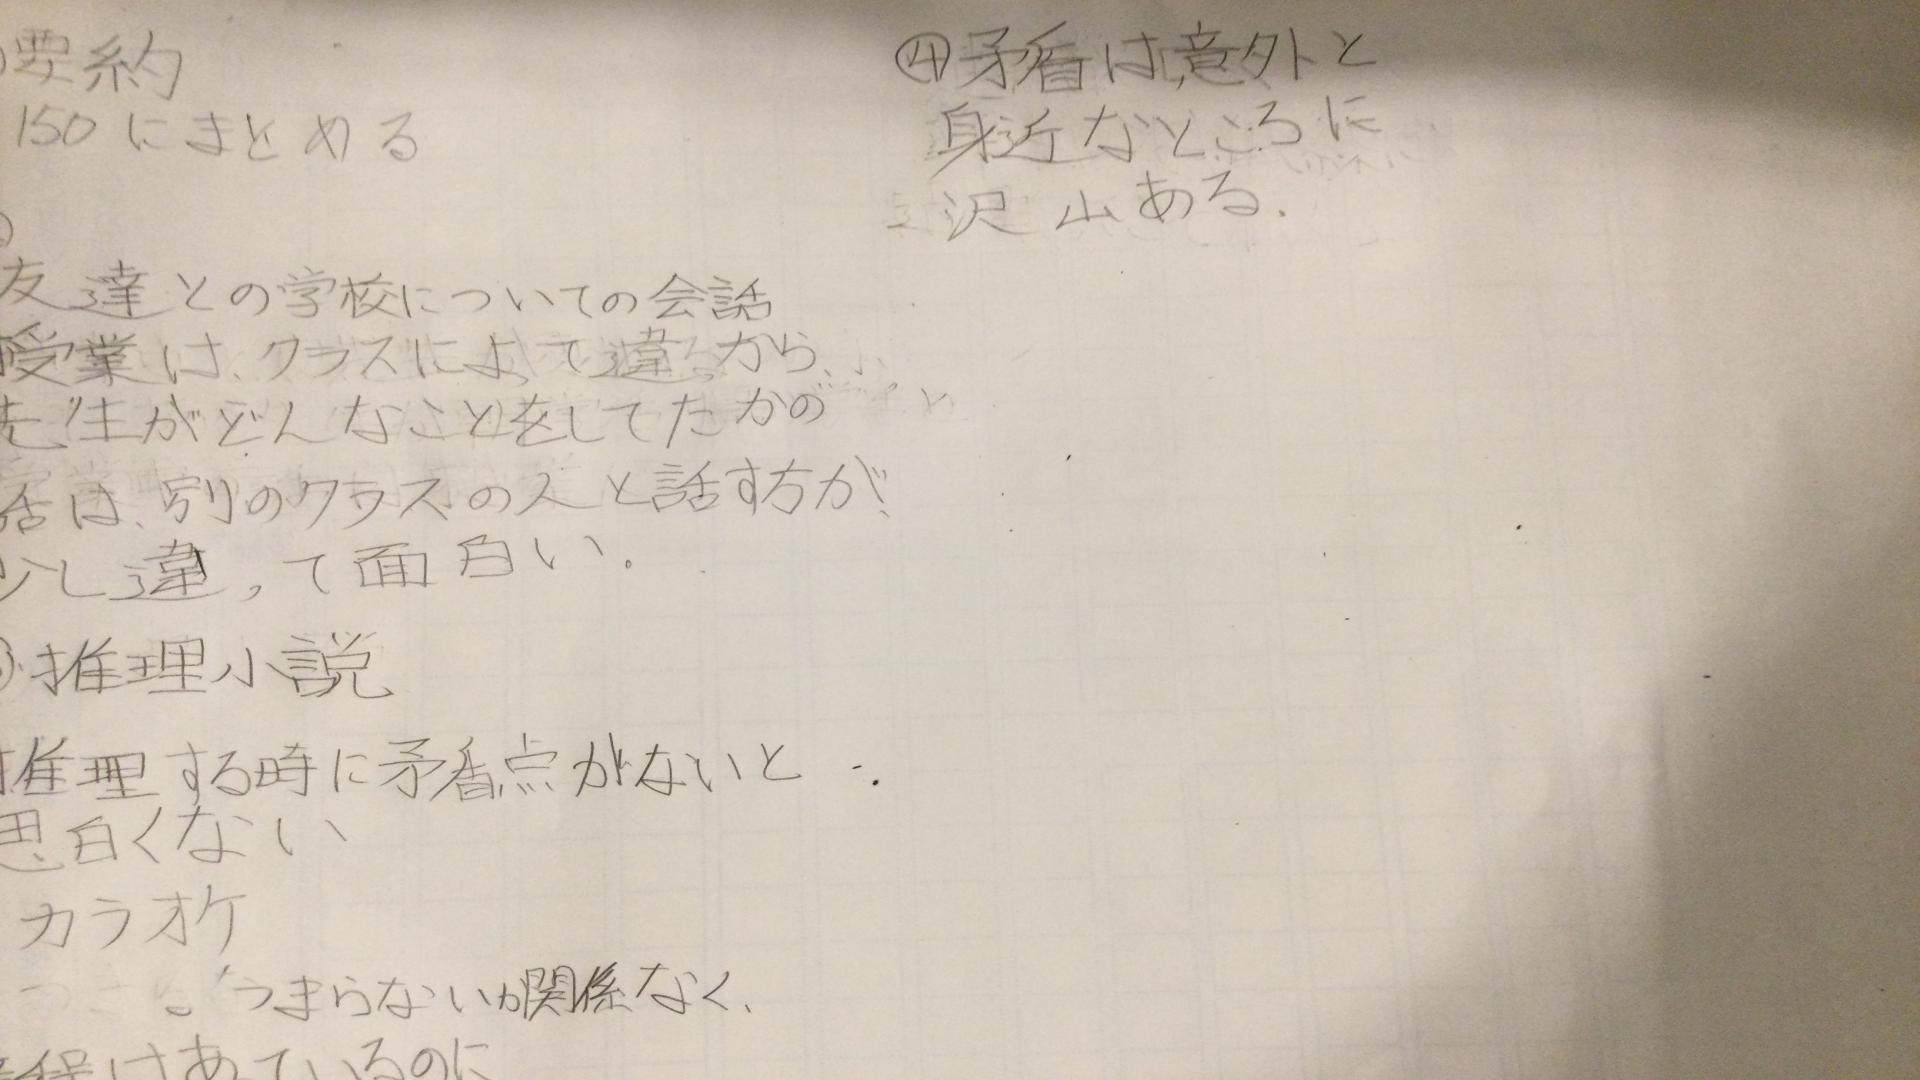 要約
150にまとめる
友達との学校についての会話
授業は、クラスによって違うから、
先生がどんなことをしてたかの
話は、別のクラスの人と話す方が、
少し違って面白い.
推理小説
推理する時に矛盾点がないと
思白くない
カラオケ
つまらないか関係なく、
はあっているのに
④矛盾は、意外と
身近なところに
沢山ある.